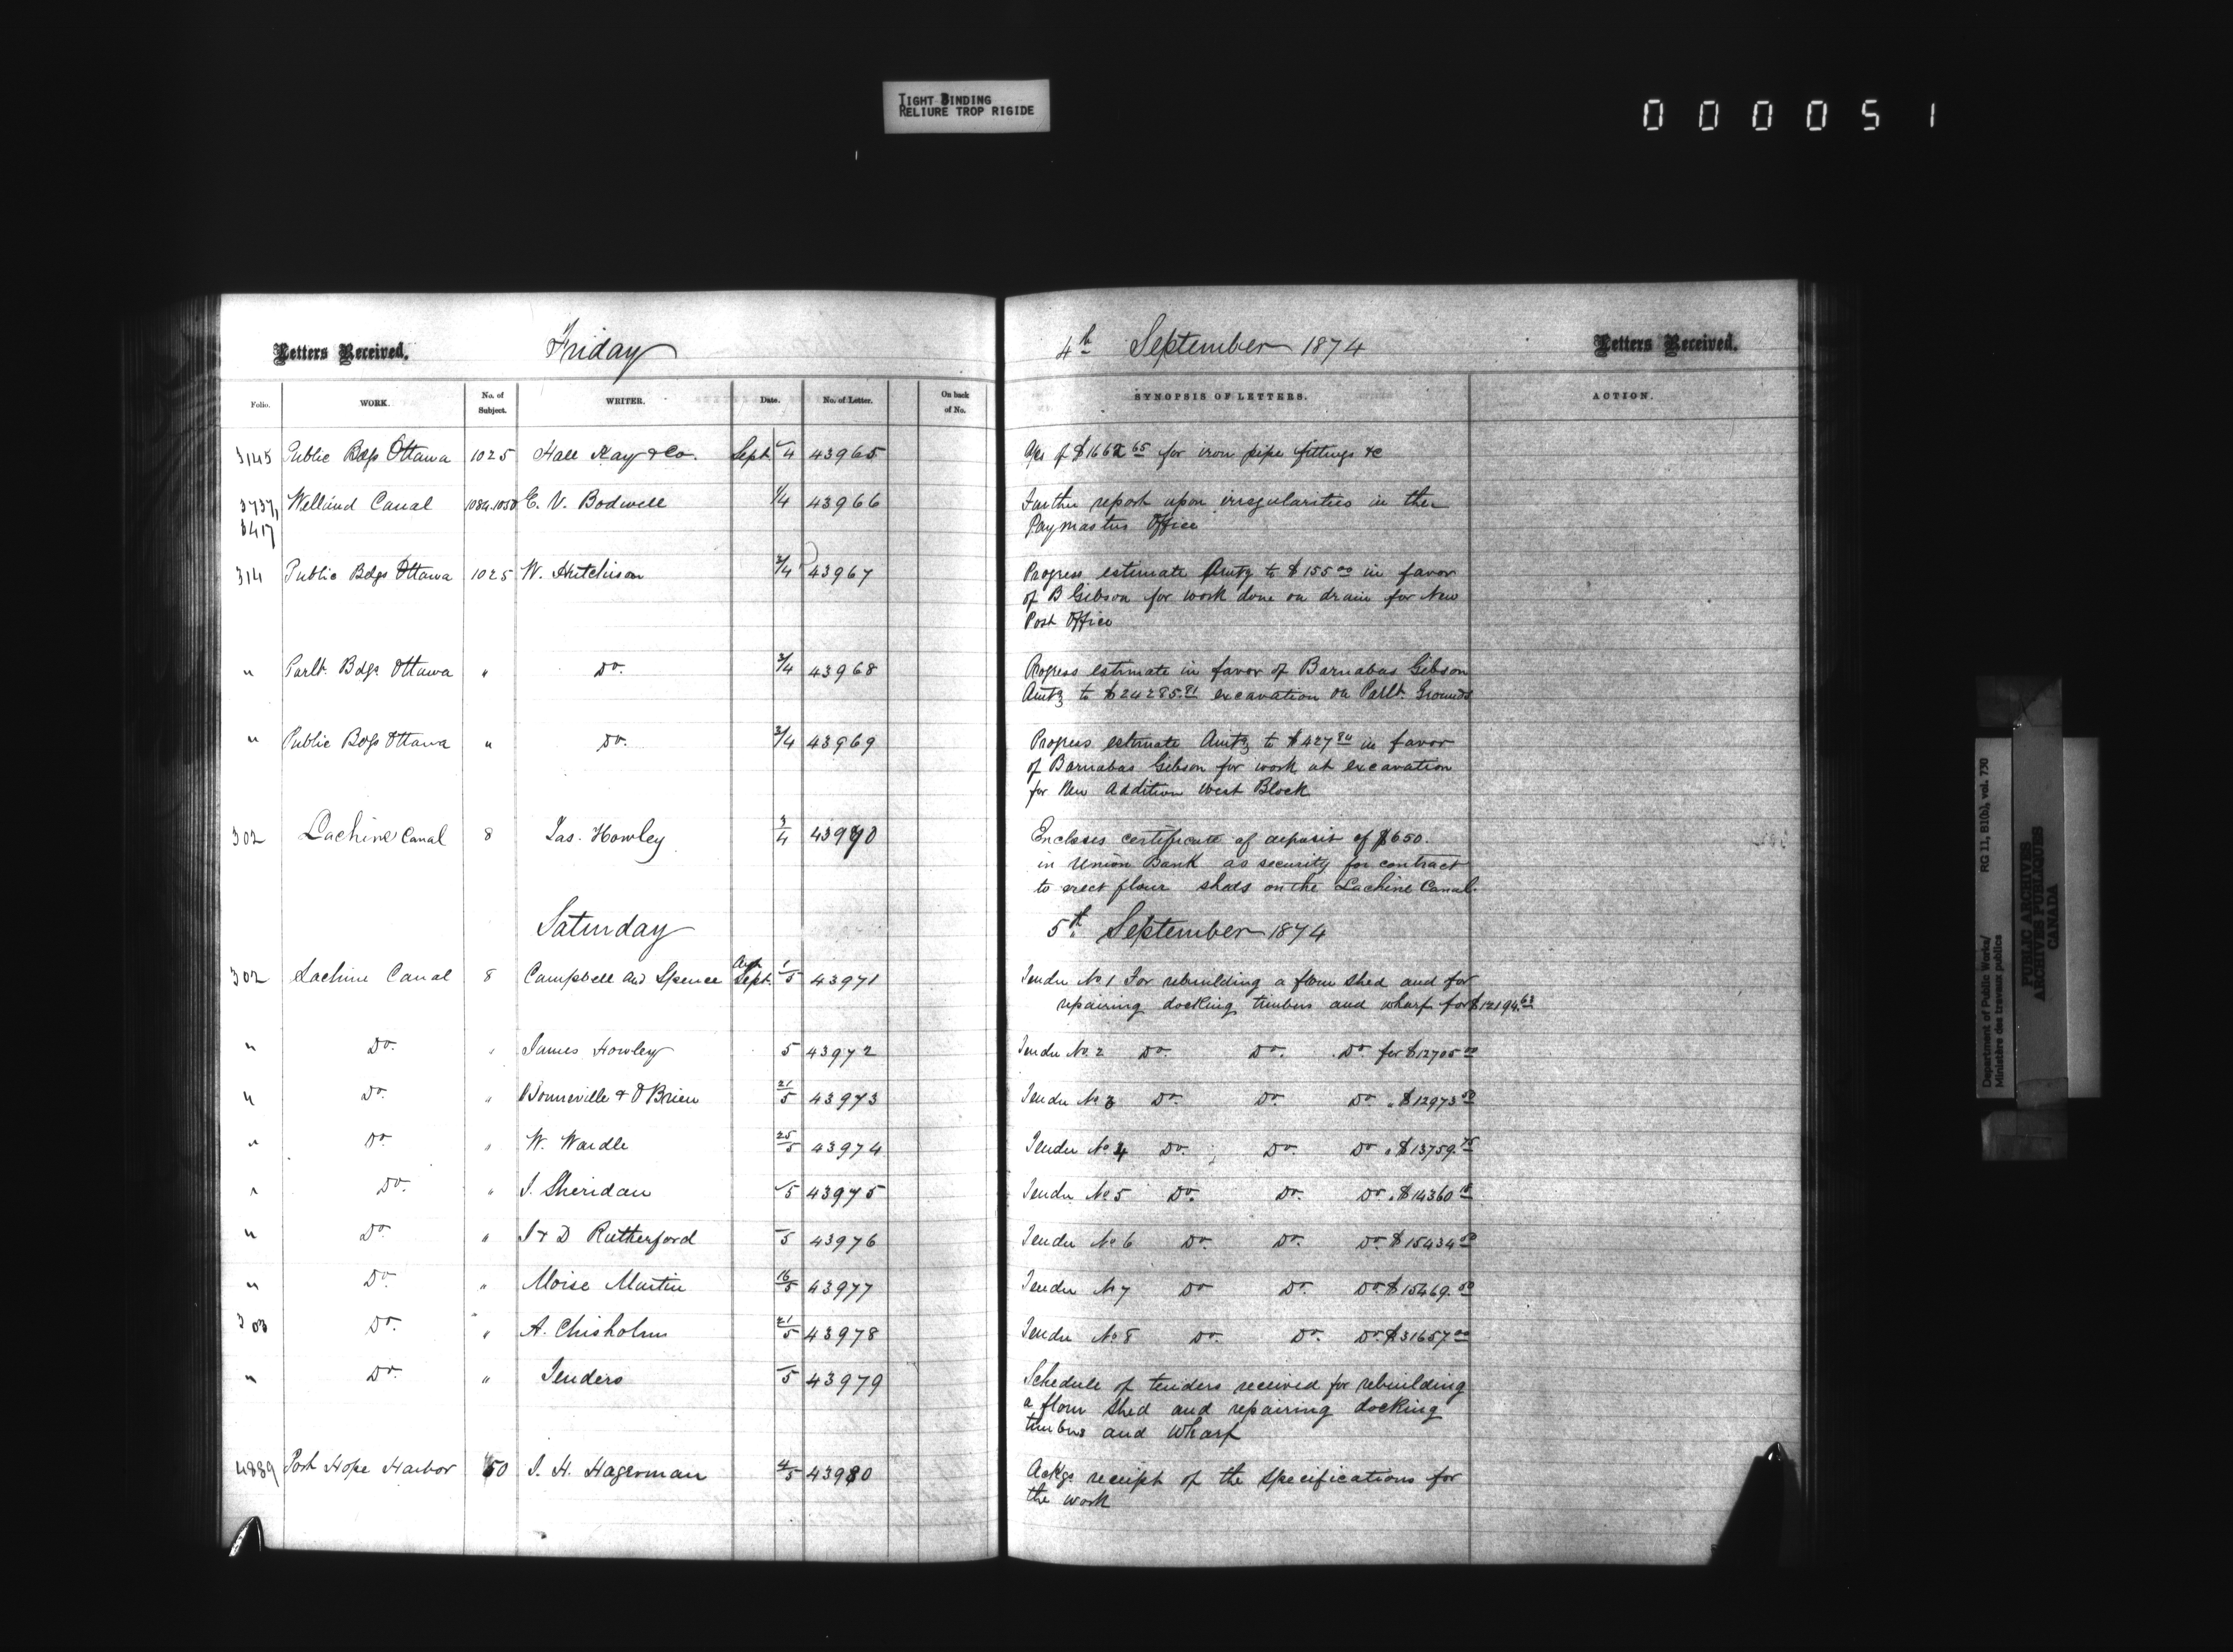 TIGHT BINDING
RELIURE TROP RIGIDE
000051
Letters Received. Friday 4th September 1874 Letters Received.
Folio. WORK. No. of Subject. WRITER. Date. No. of Letter. On back of No. SYNOPSIS OF LETTERS. ACTION.
3145 Public Bdgs Ottawa 1025 Hall Kay & Co. Sept 4 43965 of $1662 65 for iron pipe fittings &c
3737, Welland Canal 1084.1050 E. V. Bodwell 1/4 43966 Further report upon irregularities in the
3417 Paymasters Office
314 Public Bdgs Ottawa 1025 W. Hutchison 3/4 43967 Progress estimate Amtg to $155 00 in favor
of B Gibson for work done on drain for New
Post Office
" Parlt. Bdgs. Ottawa " Do. 3/4 43968 Progress estimate in favor of Barnabas Gibson
Amtg to $24285.81 excavation on Parlt. Grounds
" Public Bdgs Ottawa " Do. 3/4 43969 Progress estimate Amtg to $427 80 in favor
of Barnabas Gibson for work at excavation
for New Addition West Block
302 Lachine Canal 8 Jas. Howley 3/4 43970 Encloses certificate of deposit of $650.
in Union Bank as security for contract
to erect flour sheds on the Lachine Canal.
Saturday 5th September 1874
302 Lachine Canal 8 Campbell and Spence Aug Sept. 1/5 43971 Tender No 1 For rebuilding a flour shed and for
repairing docking timbers and wharf for $12194.63
" Do. " James Howley 5 43972 Tender No. 2 Do. Do. Do for $12705 00
" Do. " Bonneville & O'Brien 21/5 43973 Tender No 3 Do. Do. Do " $12973 50
" Do " W. Wardle 25/5 43974 Tender No 4 Do. Do. Do " $13759.75
" Do. " J. Sheridan 5 43975 Tender No 5 Do. Do. Do " $14360 18
" Do. " J & D Rutherford 5 43976 Tender No 6 Do. Do. Do. $15434 50
" Do. " Moise Martin 16/5 43977 Tender No 7 Do Do. Do. $15469.50
303 Do. " A. Chisholm 21/5 43978 Tender No 8 Do. Do. Do. $31657.00
" Do. " Tenders 5 43979 Schedule of tenders received for rebuilding
a flour shed and repairing docking
timbers and wharf
4889 Port Hope Harbor 50 J. H. Hagerman 4/5 43980 Ackgs receipt of the specifications for
the work
Department of Public Works/ RG 11, B1(b), vol. 730
Ministère des travaux publics
PUBLIC ARCHIVES
ARCHIVES PUBLIQUES
CANADA